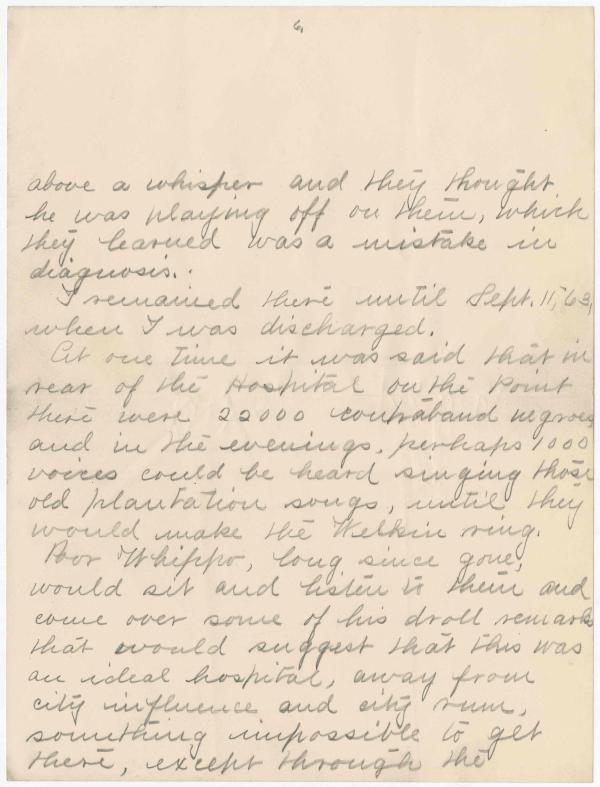 6.
above a whisper and they thought
he was playing off on them, which
they learned was a mistake in
diagnosis.
I remained there until Sept. 11, 63,
when I was discharged.
At one time it was said that in
rear of the Hospital on the Point
there were 22000 contraband negroes
and in the evenings, perhaps 1000
voices could be heard singing those
old plantation songs, until they
would make the Welkin ring.
Poor Whippo, long since gone,
would sit and listen to them and
come over some of his droll remarks
that would suggest that this was
an ideal hospital, away from
city influence and city rum,
something impossible to get
there, except through the